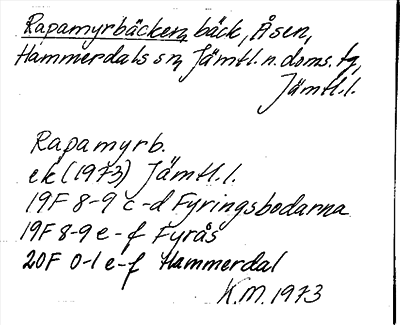 Rapamyrbäcken, bäck, Åsen,
Hammerdals sn, Jämtl. n. doms. tg,
Jämtl.l.
Rapamyrb.
ek (1973) Jämtl.l.
19F 8-9 c-d Fyringsbodarna
19F 8-9 e-f Fyrås
20F 0-1 e-f Hammerdal
K.M. 1973